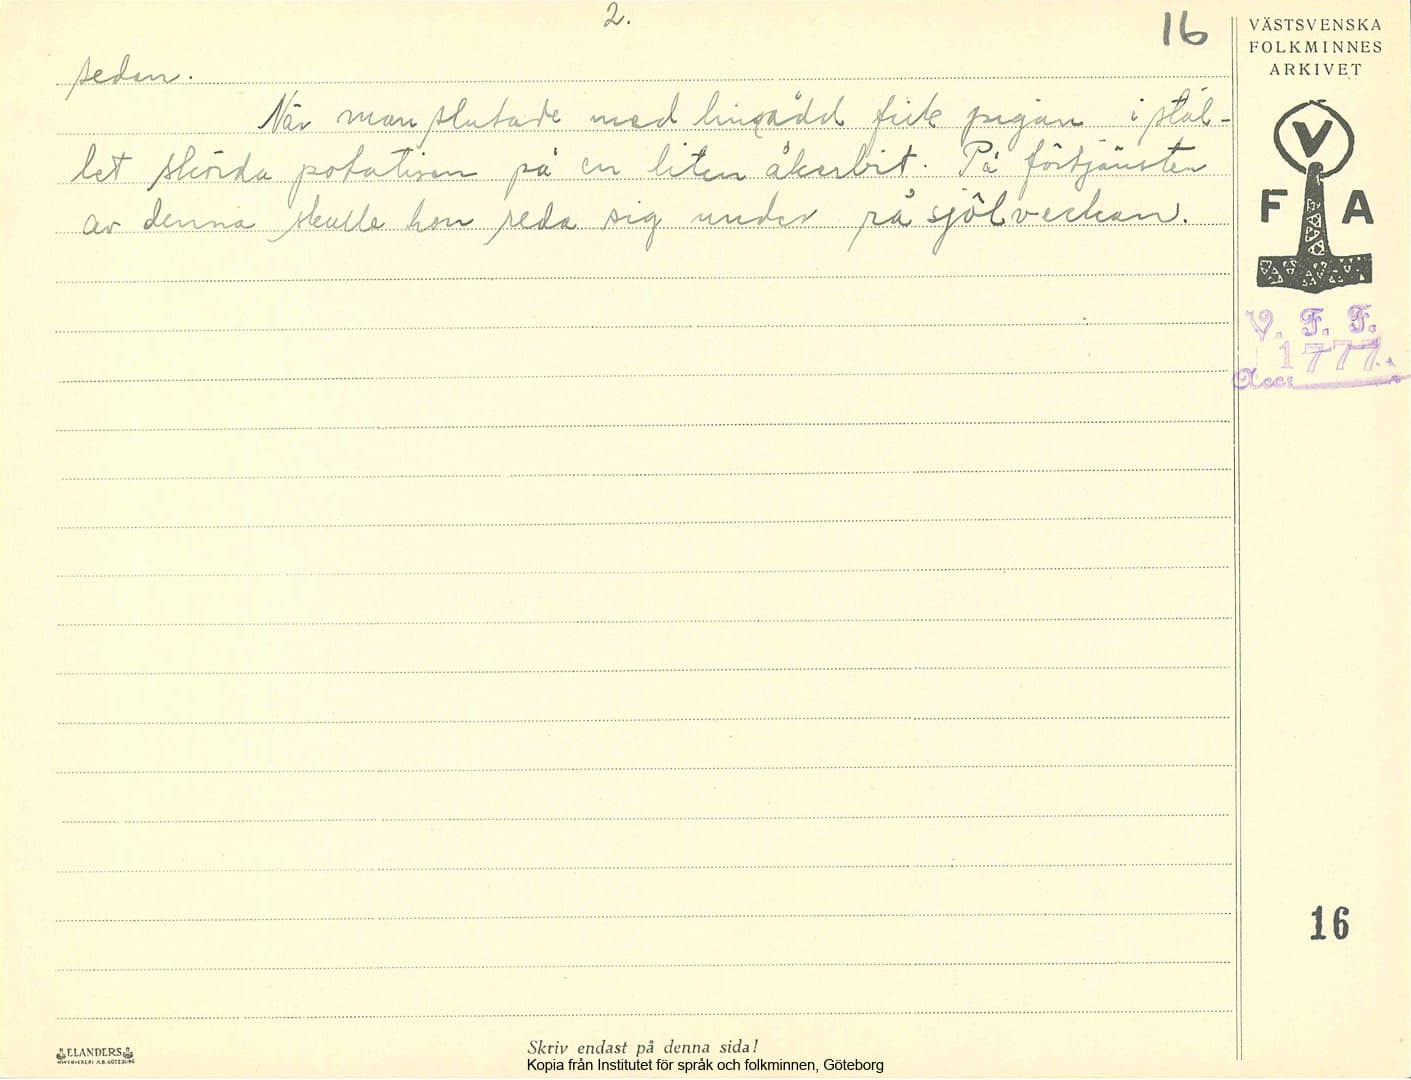 2.
16
VÄSTSVENSKA
FOLKMINNES
ARKIVET
sedan.
När man slutade med linsådd fick pigan i stäl-
let skörda potatisen på en liten åkerbit. På förtjänsten
av denna skulle hon reda sig under råsjölveckan.
V
F A
V. F. F.
1777.
Acc:
16
ELANDERS
Skriv endast på denna sida!
Kopia från Institutet för språk och folkminnen, Göteborg